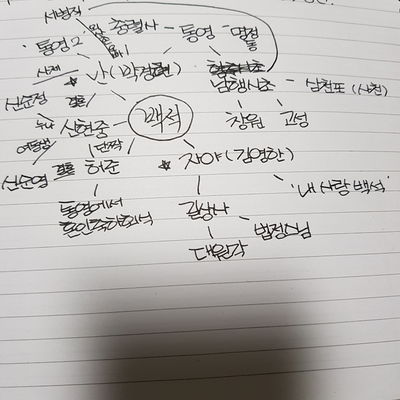 서병직
충렬사 - 통영 - 명정골
통영2
사제
난 (박경련)
남행시초 - 삼천포 (사천)
창원 고성
신순정
누나
신현중
백석
여동생
단짝
신순영
허준
자야 (김영한)
통영에서
혼인축하회식
김상나
'내 사랑 백석'
법정스님
대원각